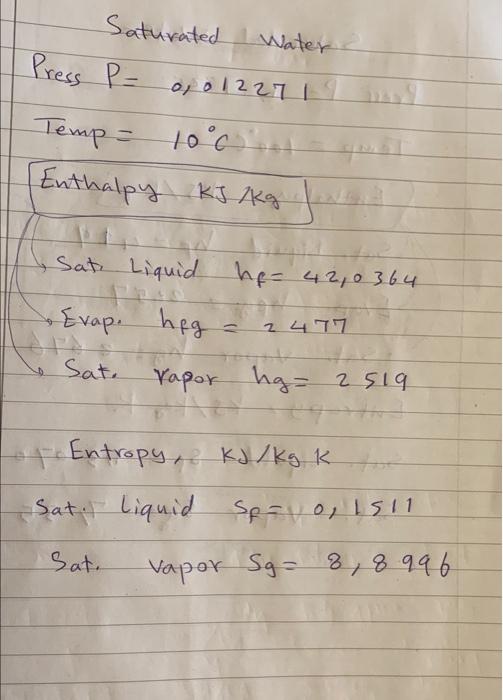 Saturated Water
Press P= 0,012271
Temp = 10°C
Enthalpy KJ/kg
Sat. Liquid hf= 42,0364
Evap. hfg = 2477
Sat. Vapor hg= 2519
Entropy, KJ/kg K
Sat. Liquid Sf= 0,1511
Sat. vapor Sg= 8,8996